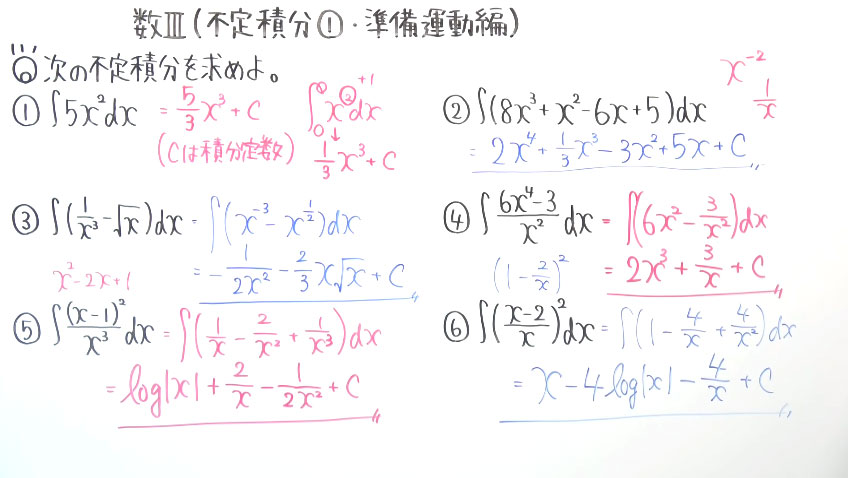 数Ⅲ(不定積分①・準備運動編)
次の不定積分を求めよ。
① ∫5x²dx = 5/3 x³ + C
(Cは積分定数)
∫x²dx +1
↓
1/3 x³ + C
② ∫(8x³+x²-6x+5)dx
= 2x⁴ + 1/3 x³ - 3x² + 5x + C
x⁻²
1/x
③ ∫(1/x³ - √x)dx = ∫(x⁻³ - x^(1/2))dx
= -1/(2x²) - 2/3 x√x + C
④ ∫(6x⁴-3)/x² dx = ∫(6x² - 3/x²)dx
= 2x³ + 3/x + C
x²-2x+1
⑤ ∫(x-1)²/x³ dx = ∫(1/x - 2/x² + 1/x³)dx
= log|x| + 2/x - 1/(2x²) + C
(1 - 2/x)²
⑥ ∫((x-2)/x)² dx = ∫(1 - 4/x + 4/x²)dx
= x - 4log|x| - 4/x + C